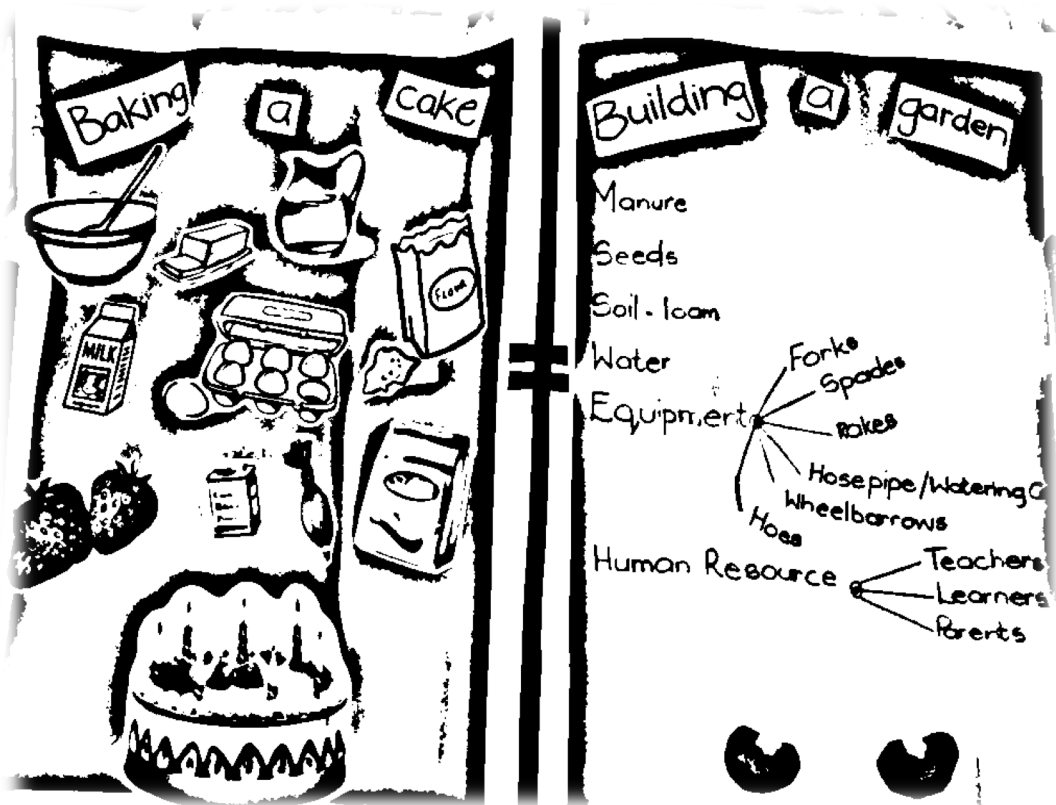 Baking a cake
FLOUR
MILK
Building a garden
Manure
Seeds
Soil - loam
Water
Equipment
Forks
Spades
Rakes
Hosepipe/Watering C
Wheelbarrows
Hoes
Human Resource
Teachers
Learners
Parents